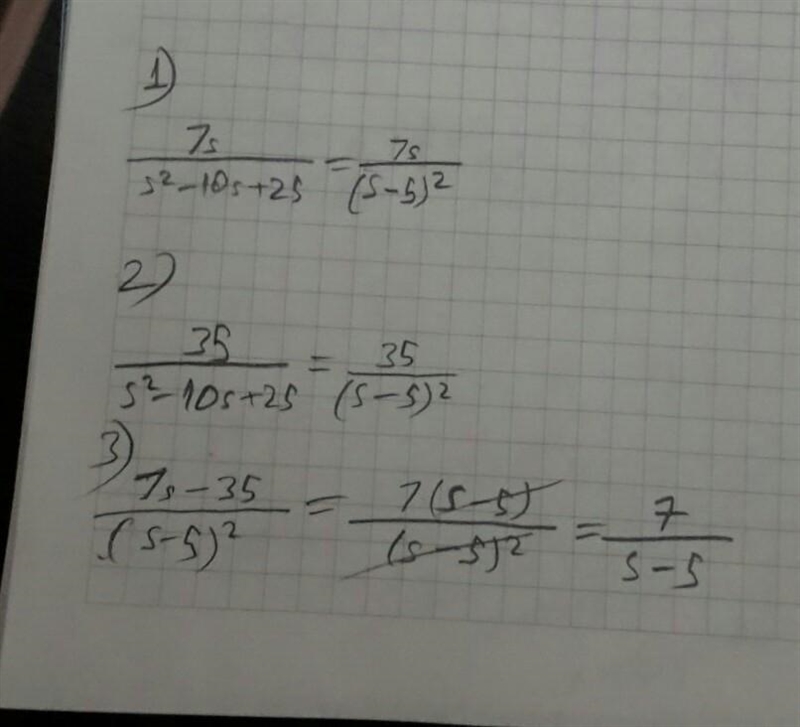 1)
7s/(s²-10s+25) = 7s/(s-5)²
2)
35/(s²-10s+25) = 35/(s-5)²
3)
(7s-35)/(s-5)² = 7(s-5)/(s-5)² = 7/(s-5)